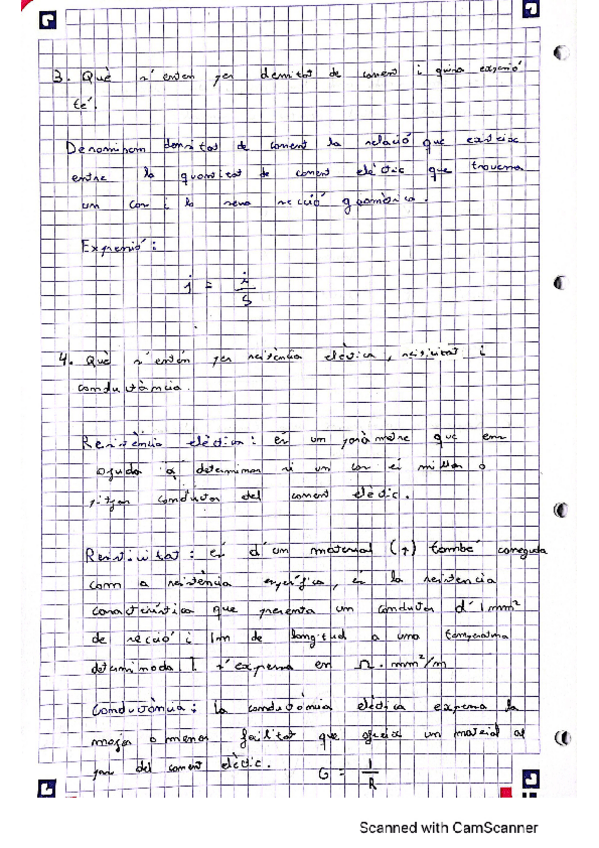 3. Què s'entén per densitat de corrent i quina expresió
té.
Denominem densitat de corrent la relació que existeix
entre la quantitat de corrent elèctric que travessa
un cos i la seva secció geomètrica.
Expressió:
j = i / S
4. Què s'entén per resistència elèctrica, resistivitat i
conductància.
Resistència elèctrica: és un paràmetre que ens
ajuda a determinar si un cos és millor o
pitjor conductor del corrent elèctric.
Resistivitat: és d'un material (ρ) també coneguda
com a resistència específica, és la resistencia
característica que presenta un conductor d'1mm²
de secció i 1m de longitud a una temperatura
determinada. I s'expressa en Ω.mm²/m
Conductància: la conductància elèctrica expressa la
major o menor facilitat que ofereix un material al
pas del corrent elèctric. G = 1 / R
Scanned with CamScanner